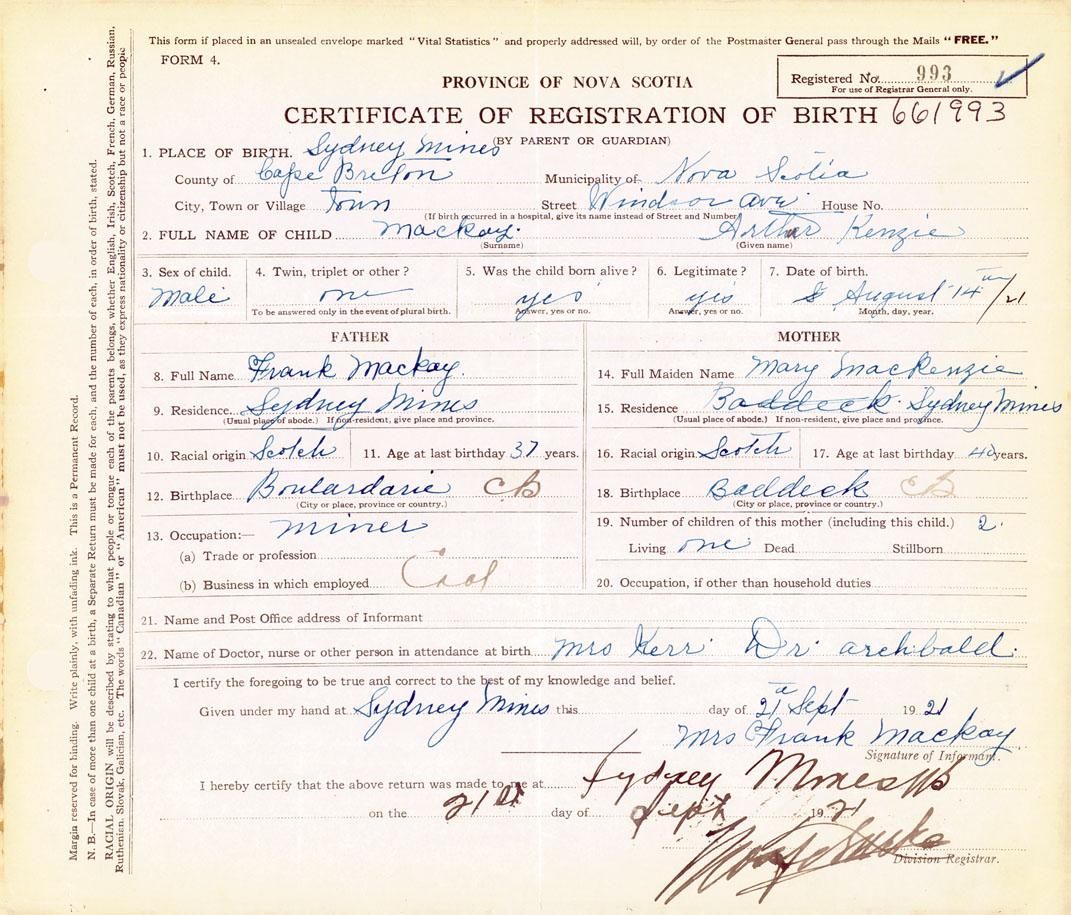 This form if placed in an unsealed envelope marked "Vital Statistics" and properly addressed will, by order of the Postmaster General pass through the Mails "FREE."
FORM 4.
Registered No. 993
For use of Registrar General only.
PROVINCE OF NOVA SCOTIA
CERTIFICATE OF REGISTRATION OF BIRTH 661993
(BY PARENT OR GUARDIAN)
1. PLACE OF BIRTH. Sydney Mines
County of Cape Breton Municipality of Nova Scotia
City, Town or Village Town Street Windsor Ave House No.
(If birth occurred in a hospital, give its name instead of Street and Number)
2. FULL NAME OF CHILD Mackay. Arthur Kenzie
(Surname) (Given name)
3. Sex of child. 4. Twin, triplet or other? 5. Was the child born alive? 6. Legitimate? 7. Date of birth.
Male one yes yes August 14th/21
To be answered only in the event of plural birth. Answer, yes or no. Answer, yes or no. Month, day, year.
FATHER
8. Full Name Frank Mackay.
9. Residence. Sydney Mines
(Usual place of abode.) If non-resident, give place and province.
10. Racial origin Scotch 11. Age at last birthday 37 years.
12. Birthplace Boulardarie CB
(City or place, province or country.)
13. Occupation:— Miner
(a) Trade or profession
(b) Business in which employed Coal
MOTHER
14. Full Maiden Name Mary MacKenzie
15. Residence Baddeck. Sydney Mines
(Usual place of abode.) If non-resident, give place and province.
16. Racial origin Scotch 17. Age at last birthday 40 years.
18. Birthplace Baddeck CB
(City or place, province or country.)
19. Number of children of this mother (including this child.) 2.
Living one Dead Stillborn
20. Occupation, if other than household duties
21. Name and Post Office address of Informant
22. Name of Doctor, nurse or other person in attendance at birth Mrs Kerr Dr archibald.
I certify the foregoing to be true and correct to the best of my knowledge and belief.
Given under my hand at Sydney Mines this day of 21 Sept 1921
Mrs Frank Mackay
Signature of Informant.
I hereby certify that the above return was made to me at Sydney Mines
on the 21st day of Sept 1921
Division Registrar.
Margin reserved for binding. Write plainly, with unfading ink. This is a Permanent Record.
N. B.—In case of more than one child at a birth, a Separate Return must be made for each, and the number of each, in order of birth, stated.
RACIAL ORIGIN will be described by stating to what people or tongue each of the parents belongs, whether English, Irish, Scotch, French, German, Russian,
Ruthenian, Slovak, Galician, etc. The words "Canadian" or "American" must not be used, as they express nationality or citizenship but not a race or people